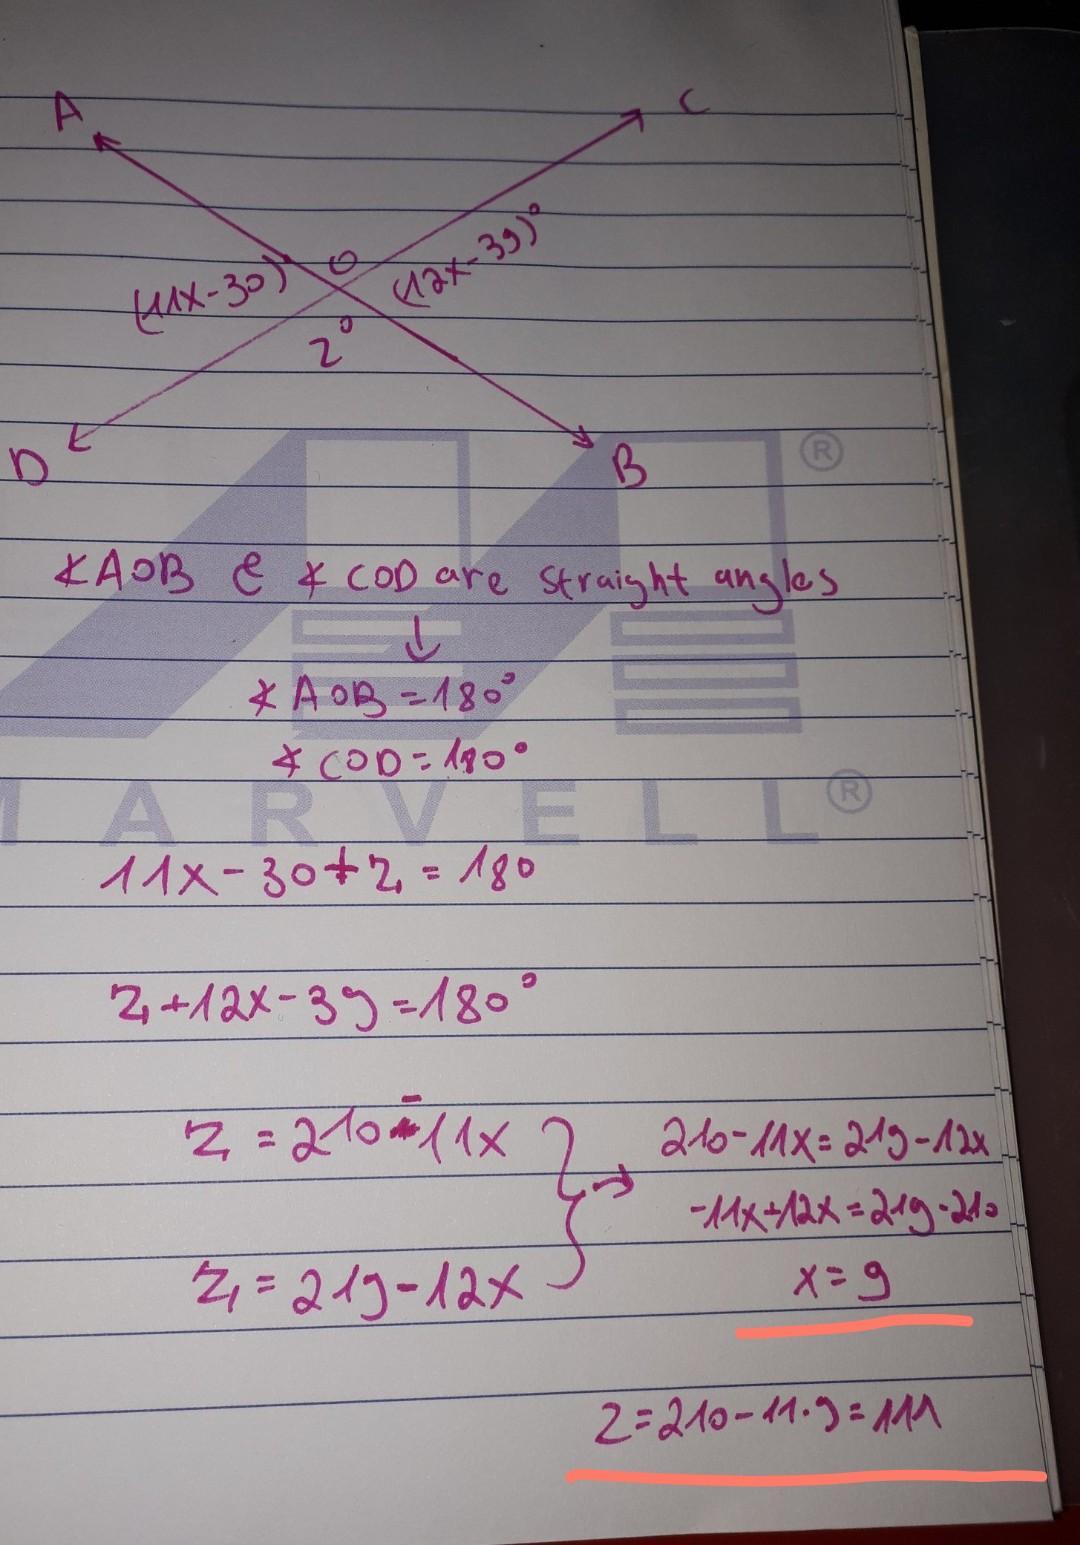 A
C
O
(11x-30)
(12x-39)°
z°
D
B
®
∡AOB e ∡COD are straight angles
↓
∡AOB=180°
∡COD=180°
MARVELL®
11x-30+z=180
z+12x-39=180°
z=210-11x
210-11x=219-12x
-11x+12x=219-210
z=219-12x
x=9
z=210-11·9=111